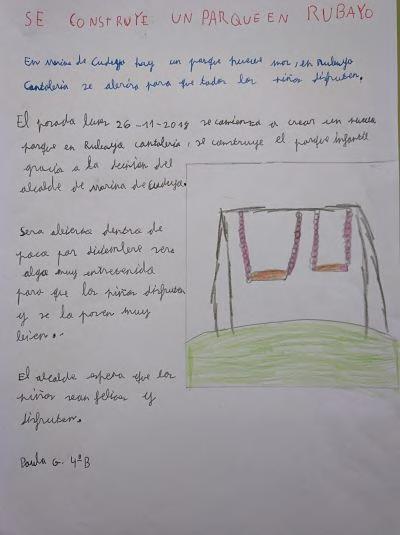 SE CONSTRUYE UN PARQUE EN RUBAYO
En Marina de Cudeyo hay un parque nuevo mas, en Rubayo
Cantabria se abrira para que todos los niños disfruten.
El pasado lunes 26-11-2018 se comienza a crear un nuevo
parque en Rubayo Cantabria, se construye el parque infantil
gracia a la decision del
alcalde de Marina de Cudeyo.
Sera abierta dentro de
poco por diciembre sera
algo muy entretenida
para que los niños disfruten
y se lo pasen muy
bien.
El alcalde espera que los
niños sean felices y
disfruten.
Paula G. 4ºB